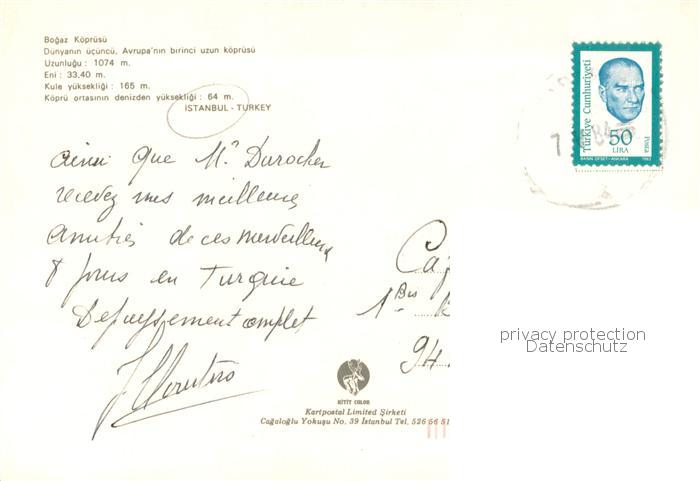 Boğaz Köprüsü
Dünyanın üçüncü, Avrupa'nın birinci uzun köprüsü
Uzunluğu : 1074 m.
Eni : 33.40 m.
Kule yüksekliği : 165 m.
Köprü ortasının denizden yüksekliği : 64 m.
İSTANBUL - TURKEY
Türkiye Cumhuriyeti
50
LİRA
Posta
1983
ainsi que Mr Durocher
recevez mes meilleures
amitiés de ces merveilleux
8 jours en Turquie
Depaysement complet
1 Bis
94
privacy protection
Datenschutz
HİTİT COLOR
Kartpostal Limited Şirketi
Cağaloğlu Yokuşu No. 39 İstanbul Tel. 526 66 51